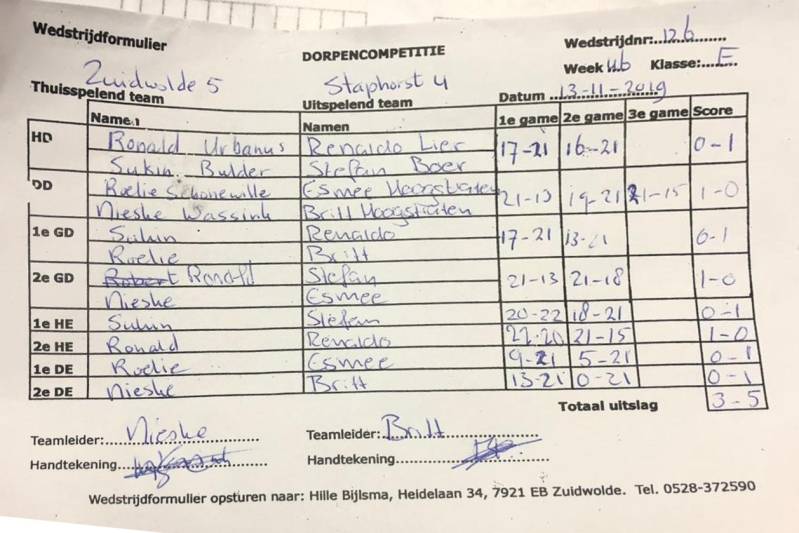 Wedstrijdformulier DORPENCOMPETITIE Wedstrijdnr:..126
Zuidwolde 5 Staphorst 4 Week 46 Klasse:...E
Thuisspelend team Uitspelend team Datum ...13-11-2019
Namen Namen 1e game 2e game 3e game Score
HD Ronald Urbanus Renaldo Lier 17-21 16-21 0-1
Sukin Bulder Stefan Boer
DD Roelie Schonewille Esmee Hoogstraten 21-13 19-21 21-15 1-0
Nieske Wassink Britt Hoogstraten
1e GD Sukin Renaldo 17-21 13-21 0-1
Roelie Britt
2e GD Robert Ronald Stefan 21-13 21-18 1-0
Nieske Esmee
1e HE Sukun Stefan 20-22 18-21 0-1
2e HE Ronald Renaldo 22-20 21-15 1-0
1e DE Roelie Esmee 9-21 5-21 0-1
2e DE Nieske Britt 13-21 10-21 0-1
Totaal uitslag 3-5
Teamleider:...Nieske Teamleider:..Britt
Handtekening Handtekening
Wedstrijdformulier opsturen naar: Hille Bijlsma, Heidelaan 34, 7921 EB Zuidwolde. Tel. 0528-372590